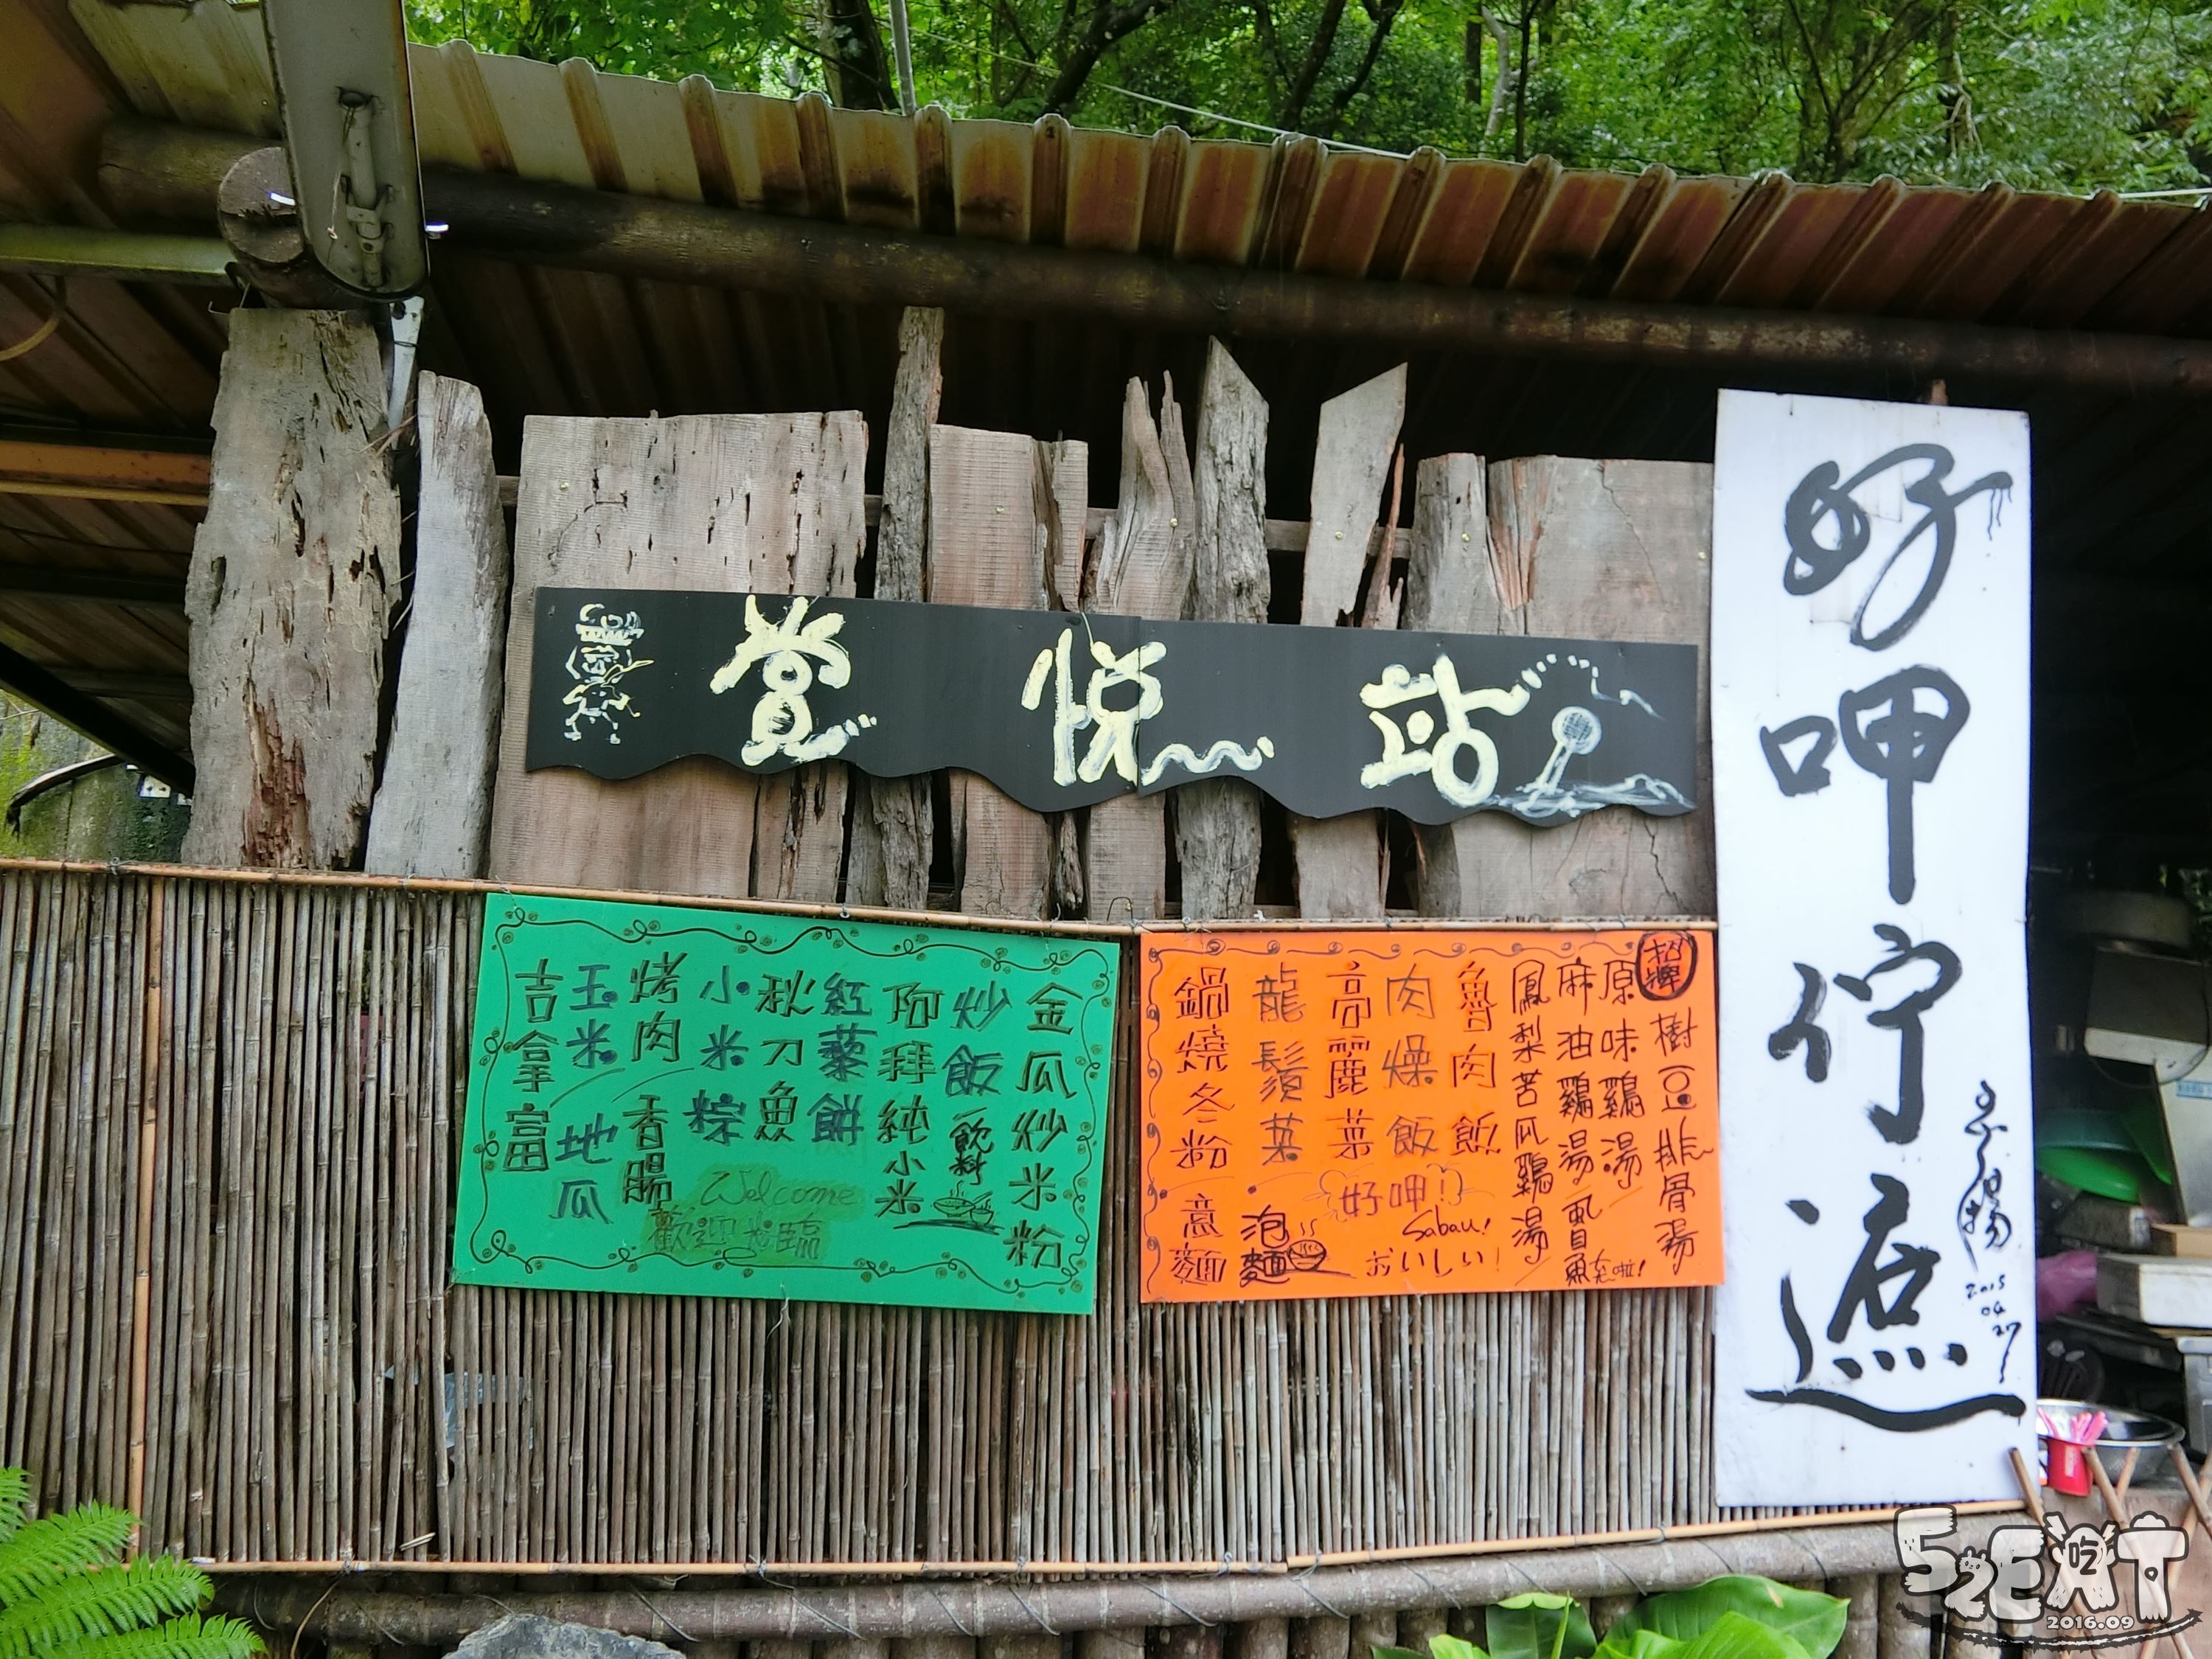 賞悦站
好呷佇遮
2015
04
27
招牌
樹豆排骨湯
原味鷄湯
麻油鷄湯
虱目魚
來啦!
鳳梨苦瓜鷄湯
魯肉飯
肉燥飯
高麗菜
龍鬚菜
鍋燒冬粉
意麵
泡麵
好呷!
Sabau!
おいしい!
金瓜炒米粉
炒飯
飲料
阿拜純小米
紅藜餅
秋刀魚
小米粽
烤肉
香腸
玉米
地瓜
吉拿富
Welcome
歡迎光臨
52EAT
吃
2016.09